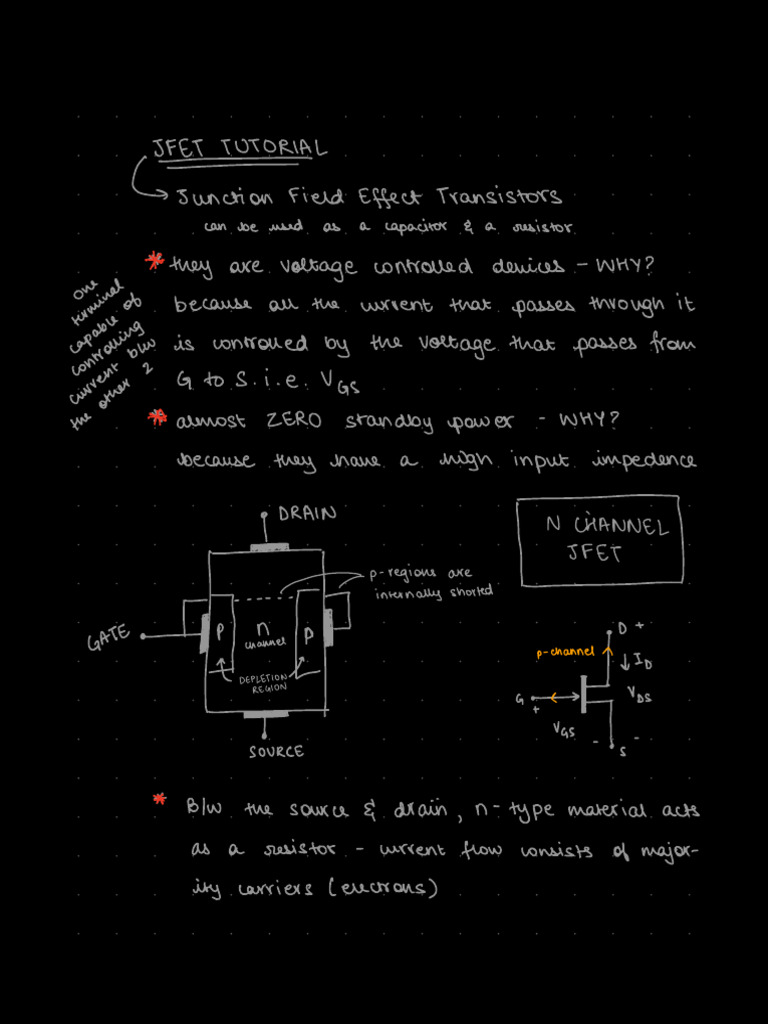 JFET TUTORIAL
Junction Field Effect Transistors
can be used as a capacitor & a resistor
* they are voltage controlled devices - WHY?
because all the current that passes through it
is controlled by the voltage that passes from
G to S. i.e. VGS
one
terminal
capable of
controlling
current b/w
the other 2
* almost ZERO standby power - WHY?
because they have a high input impedence
DRAIN
p-regions are
internally shorted
N CHANNEL
JFET
GATE
P
n
channel
P
DEPLETION
REGION
SOURCE
D +
p-channel
ID
G
+
VDS
VGS
-
S
-
* B/w the source & drain, n-type material acts
as a resistor - current flow consists of major-
ity carriers (electrons)